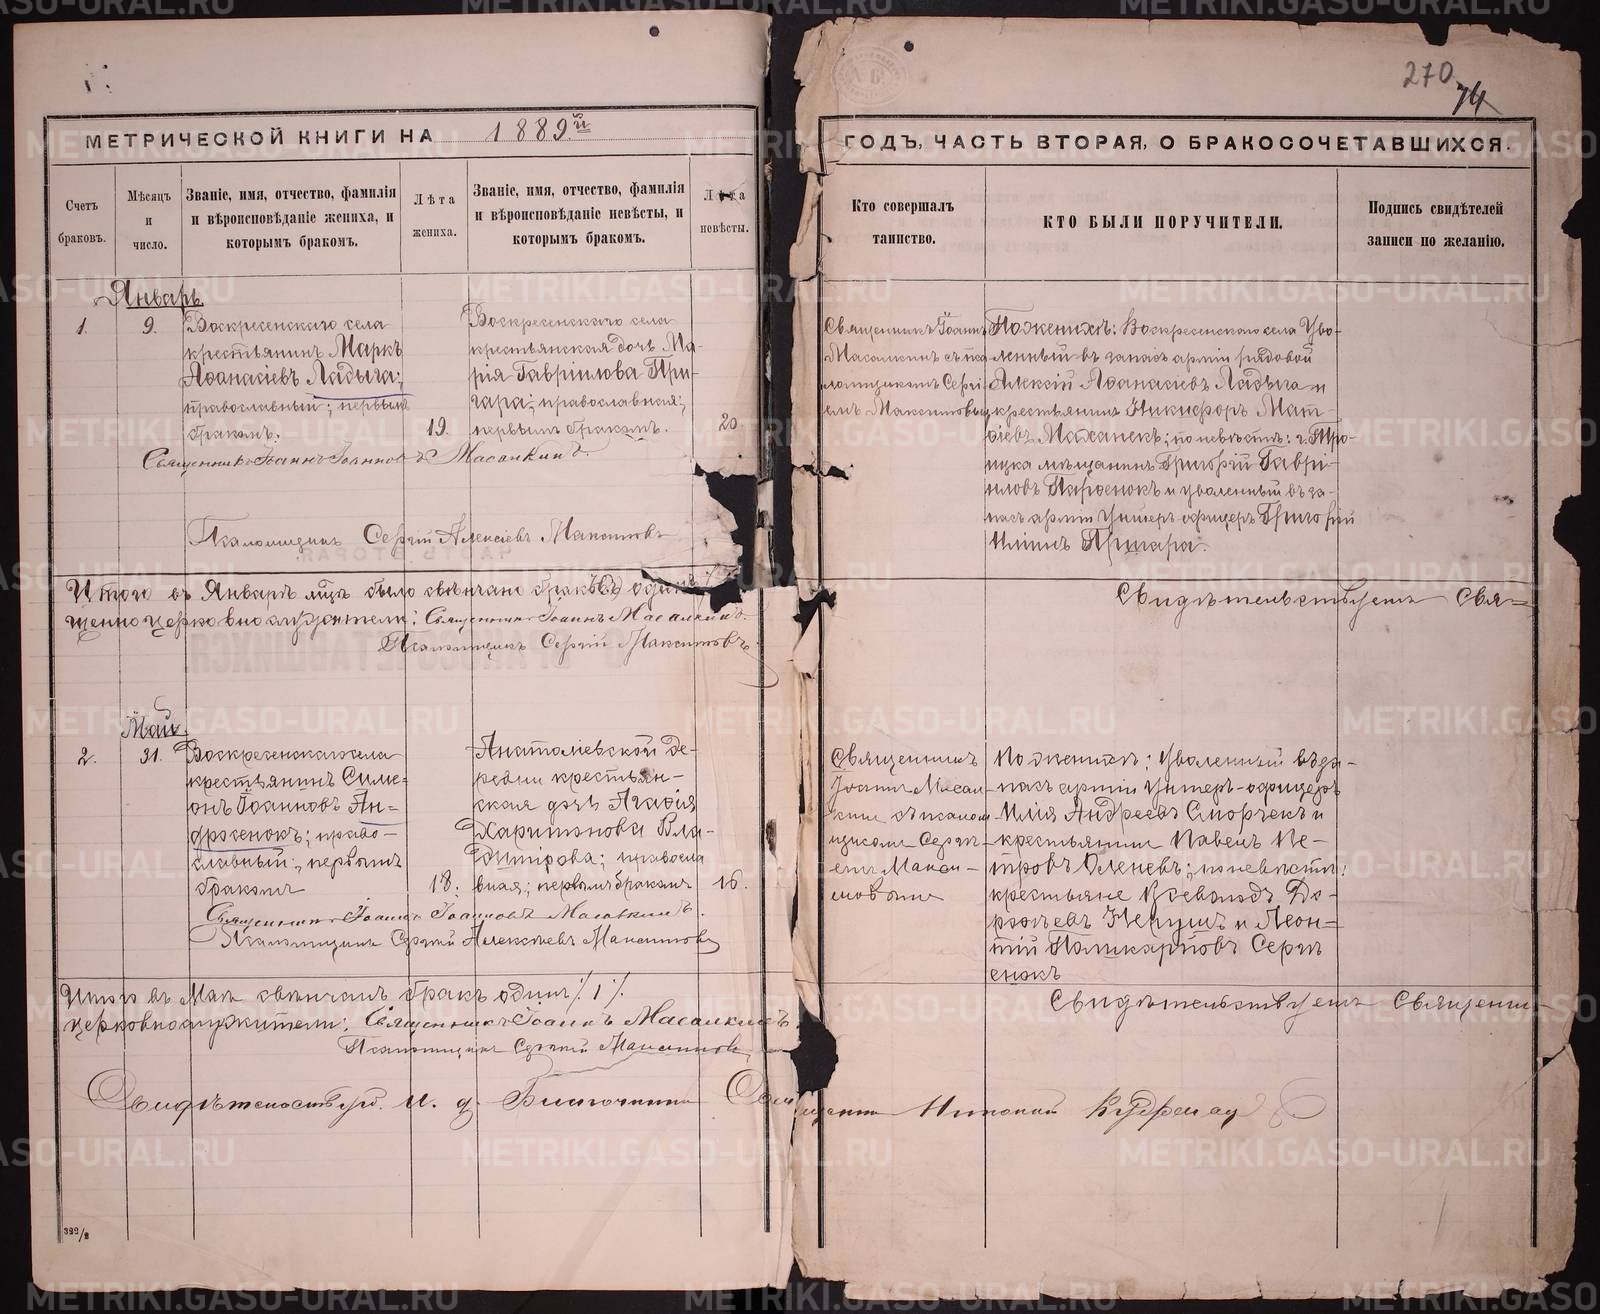 270
74
МЕТРИЧЕСКОЙ КНИГИ НА 1889й
ГОДЪ, ЧАСТЬ ВТОРАЯ, О БРАКОСОЧЕТАВШИХСЯ.
Счетъ
браковъ.
Мѣсяцъ
и
число.
Званіе, имя, отчество, фамилія
и вѣроисповѣданіе жениха, и
которымъ бракомъ.
Лѣта
жениха.
Званіе, имя, отчество, фамилія
и вѣроисповѣданіе невѣсты, и
которымъ бракомъ.
Лѣта
невѣсты.
Кто совершалъ
таинство.
КТО БЫЛИ ПОРУЧИТЕЛИ.
Подпись свидѣтелей
записи по желанію.
Январь
1.
9.
Воскресенскаго села
крестьянинъ Маркъ
Аѳанасіевъ Ладыга;
православный; первымъ
бракомъ.
19.
Воскресенскаго села
крестьянская дочь Ма-
рія Гавріилова При-
гара; православная;
первымъ бракомъ.
20
Священникъ Іоаннъ
Масалкинъ съ пса
ломщикомъ Сергі-
емъ Максимовым
По женихѣ: Воскресенскаго села Уво-
ленный въ запасъ арміи рядовой
Алексій Аѳанасіевъ Ладыга и
крестьянинъ Никифоръ Мат-
ѳіевъ Маханекъ; по невѣстѣ: г. Тро-
ицка мѣщанинъ Григорій Гаврі-
иловъ Парѳенокъ и уволенный въ за-
пасъ арміи Унтеръ офицеръ Григорій
Иліинъ Пригара.
Священникъ Іоаннъ Іоанновъ Масалкинъ.
Псаломщикъ Сергій Алексіевъ Максимовъ
Итого въ Январѣ м-цѣ было свѣнчано браковъ одинъ
Свидѣтельствуетъ Свя=
щенноцерковнослужители: Священникъ Іоаннъ Масалкинъ.
Псаломщикъ Сергій Максимовъ.
Май.
2.
31.
Воскресенскаго села
крестьянинъ Симе=
онъ Іоанновъ Ан=
дрѳсенокъ; право-
славный; первымъ
бракомъ
18.
Анатоліевской де-
ревни крестьян-
ская дочь Агаѳія
Харитонова Вла-
димірова; правосла
вная; первымъ бракомъ
16.
Священникъ
Іоаннъ Масал-
кинъ съ псалом
щикомъ Сергі-
емъ Макси-
мовымъ
По женихѣ: Уволенный въ за-
пасъ арміи Унтеръ-офицеръ
Илія Андреевъ Сморчекъ и
крестьянинъ Павелъ Пе-
тровъ Оленевъ; по невѣстѣ:
крестьяне Всеволодъ До-
роѳѣевъ Нечушъ и Леон=
тій Поликарповъ Сергі
енокъ
Священникъ Іоаннъ Іоанновъ Масалкинъ.
Псаломщикъ Сергій Алексѣевъ Максимовъ
Итого въ Маѣ свѣнчанъ бракъ одинъ /1/.
Свидѣтельствуетъ Священно-
церковнослужители: Священникъ Іоаннъ Масалкинъ
Псаломщикъ Сергій Максимовъ
Свидѣтельствуетъ. И. д. Благочинного Священникъ Николай
322/2
METRIKI.GASO-URAL.RU